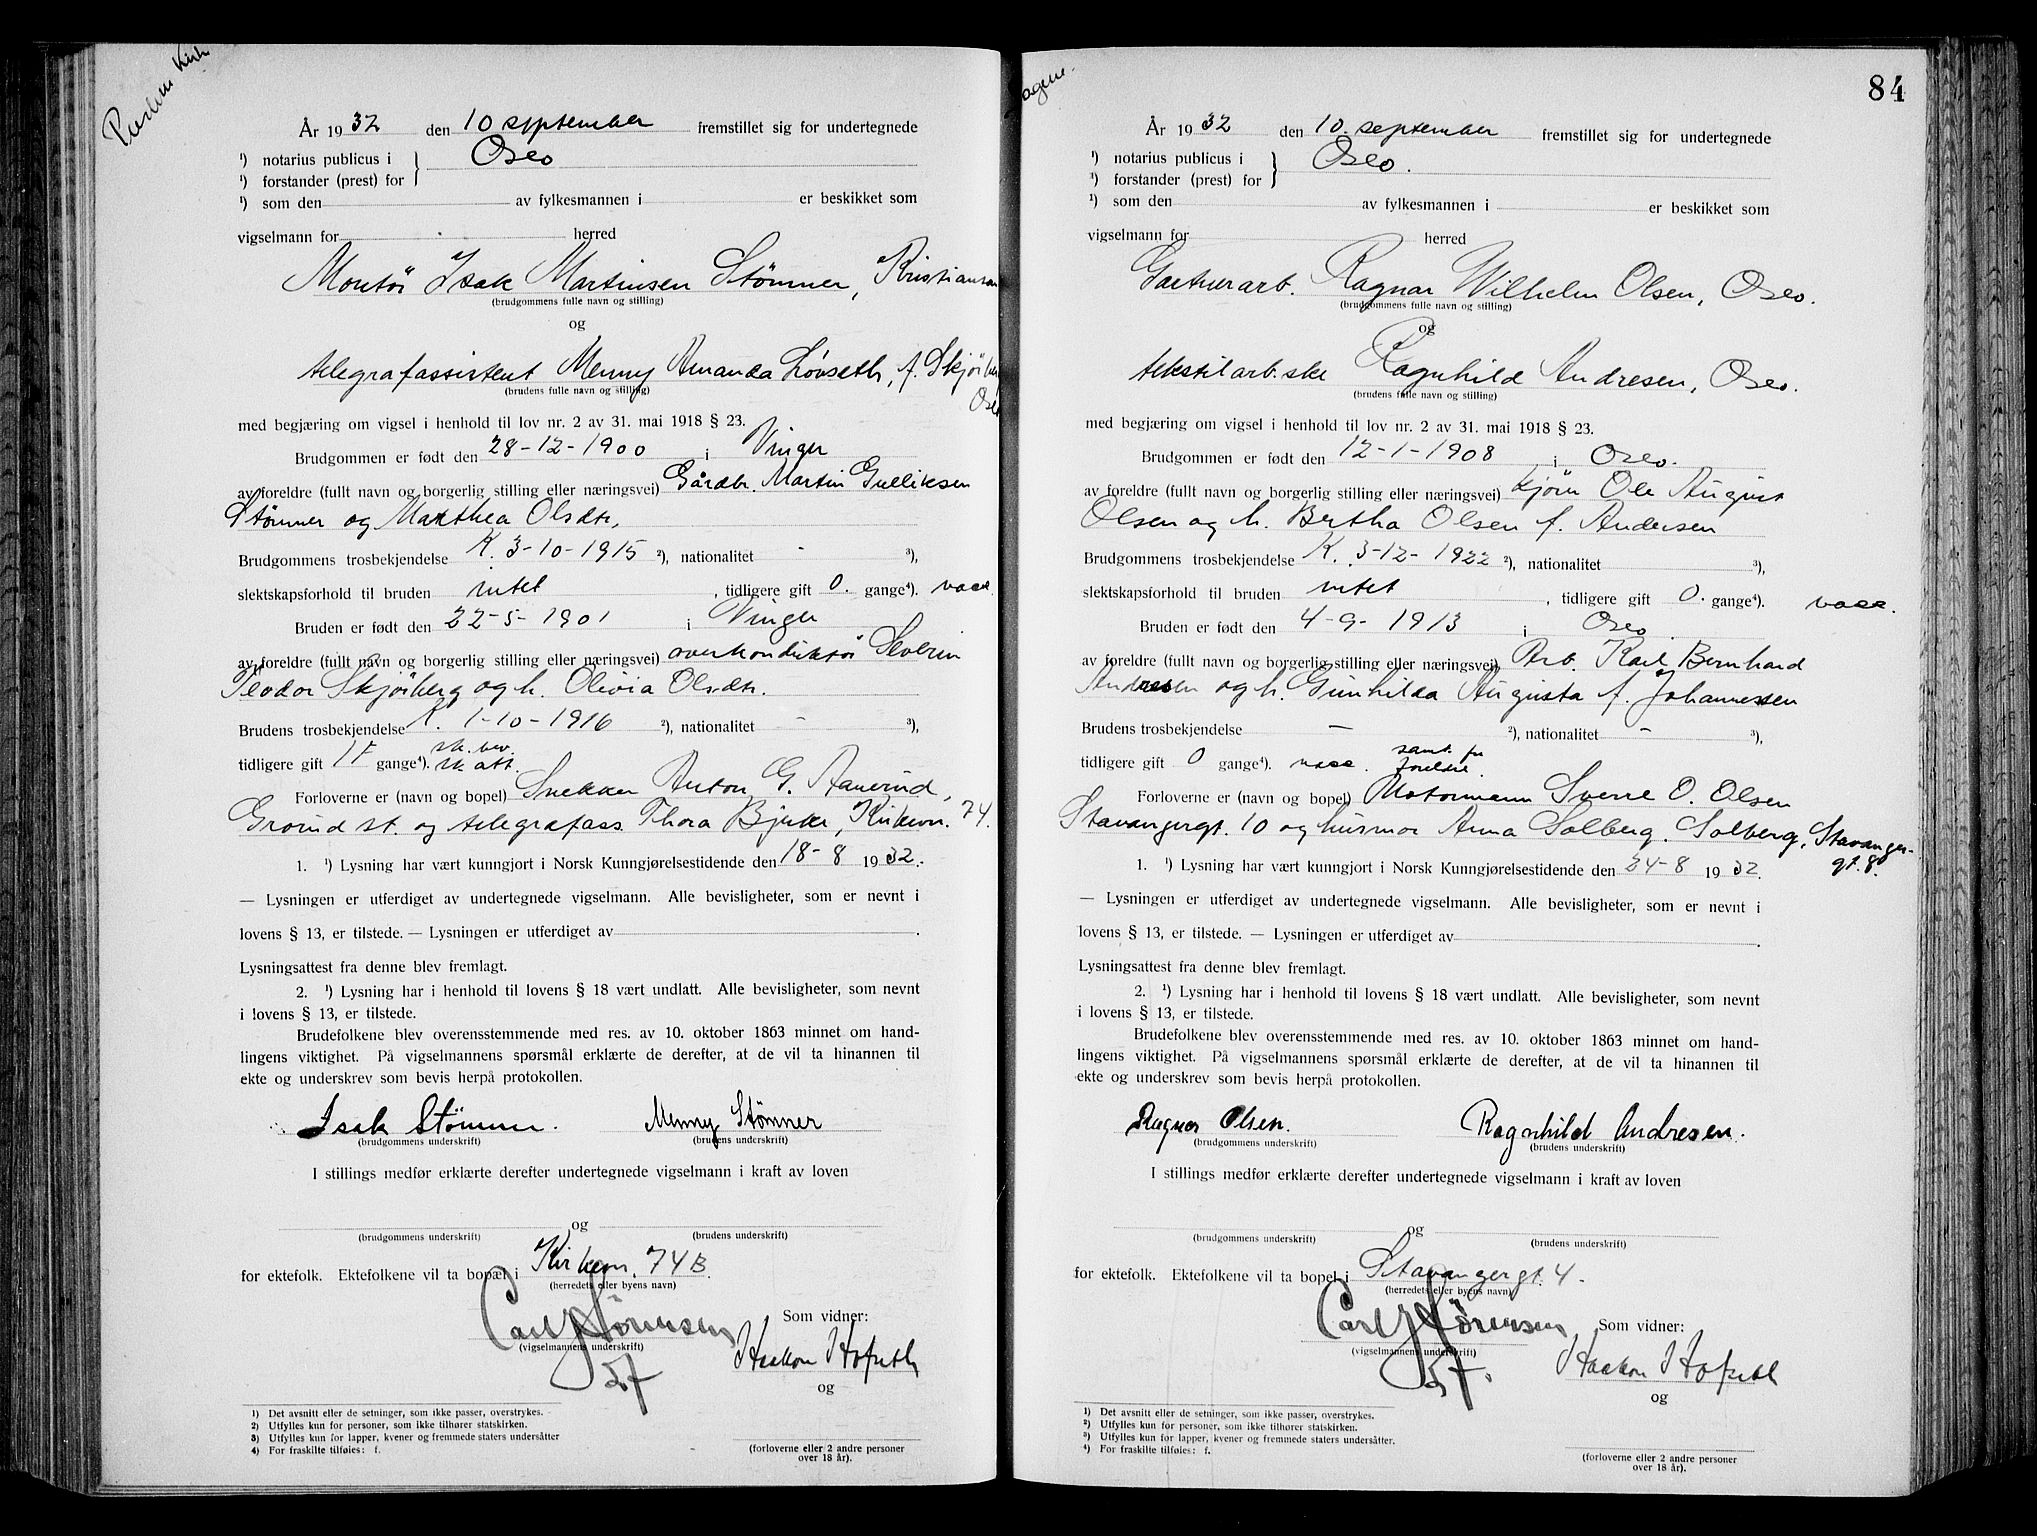 År 1932 den 10 september fremstillet sig for undertegnede
¹) notarius publicus i } Oslo
¹) forstander (prest) for
¹) som den av fylkesmannen i er beskikket som
vigselmann for herred
Montör Isak Martinsen Stömner, Kristiansan
(brudgommens fulle navn og stilling)
og
telegrafassistent Menny Amanda Lövseth, f. Skjöberg
(brudens fulle navn og stilling)
Oslo
med begjæring om vigsel i henhold til lov nr. 2 av 31. mai 1918 § 23.
Brudgommen er født den 28-12-1900 i Vinger
av foreldre (fullt navn og borgerlig stilling eller næringsvei) Gårdbr. Martin Gulliksen
Stömner og Marthea Olsdtr,
Brudgommens trosbekjendelse K. 3-10-1915 ²), nationalitet - ³),
slektskapsforhold til bruden intet , tidligere gift 0. gange⁴). vacc.
Bruden er født den 22-5-1901 i Vinger
av foreldre (fullt navn og borgerlig stilling eller næringsvei) overkonduktör Severin
Teodor Skjöberg og h. Olivia Olsdtr.
Brudens trosbekjendelse K. 1-10-1916 ²), nationalitet - ³),
tidligere gift 1 f gange⁴). sk. bev. sk. att.
Forloverne er (navn og bopel) Snekker Anton G. Aanerud,
Grorud st. og telegrafass. Thora Bjerke, Kirkevn. 74.
1. ¹) Lysning har vært kunngjort i Norsk Kunngjørelsestidende den 18-8 1932.
— Lysningen er utferdiget av undertegnede vigselmann. Alle bevisligheter, som er nevnt i
lovens § 13, er tilstede. — Lysningen er utferdiget av .
Lysningsattest fra denne blev fremlagt.
2. ¹) Lysning har i henhold til lovens § 18 vært undlatt. Alle bevisligheter, som nevnt
i lovens § 13, er tilstede.
Brudefolkene blev overensstemmende med res. av 10. oktober 1863 minnet om hand-
lingens viktighet. På vigselmannens spørsmål erklærte de derefter, at de vil ta hinannen til
ekte og underskrev som bevis herpå protokollen.
Isak Stömner. Menny Stömner
(brudgommens underskrift) (brudens underskrift)
I stillings medfør erklærte derefter undertegnede vigselmann i kraft av loven
og
(brudgommens underskrift) (brudens underskrift)
for ektefolk. Ektefolkene vil ta bopæl i Kirkevn. 74B.
(herredets eller byens navn)
Carl Sörensen Som vidner:
(vigselmannens underskrift) Haakon Hofseth
og
¹) Det avsnitt eller de setninger, som ikke passer, overstrykes.
²) Utfylles kun for personer, som ikke tilhører statskirken.
³) Utfylles kun for lapper, kvener og fremmede staters undersåtter
⁴) For fraskilte tilføies: f.
(forloverne eller 2 andre personer
over 18 år).
84
År 1932 den 10. september fremstillet sig for undertegnede
¹) notarius publicus i } Oslo.
¹) forstander (prest) for
¹) som den av fylkesmannen i er beskikket som
vigselmann for herred
Gartnerarb. Ragnar Wilhelm Olsen, Oslo.
(brudgommens fulle navn og stilling)
og
tekstilarb.ske Ragnhild Andresen, Oslo.
(brudens fulle navn og stilling)
med begjæring om vigsel i henhold til lov nr. 2 av 31. mai 1918 § 23.
Brudgommen er født den 12-1-1908 i Oslo.
av foreldre (fullt navn og borgerlig stilling eller næringsvei) kjörer Ole August
Olsen og h. Bertha Olsen f. Andersen
Brudgommens trosbekjendelse K. 3-12-1922 ²), nationalitet ³),
slektskapsforhold til bruden intet , tidligere gift 0. gange⁴). vacc.
Bruden er født den 4-9-1913 i Oslo
av foreldre (fullt navn og borgerlig stilling eller næringsvei) Arb. Karl Bernhard
Andresen og h. Gunhilda Augusta f. Johannessen
Brudens trosbekjendelse — ²), nationalitet - ³),
tidligere gift 0 gange⁴). vacc. samt. fra foreldre.
Forloverne er (navn og bopel) Motormann Sverre O. Olsen
Stavangergt. 10 og husmor Anna Solberg. Solberg, Stavanger-
gt. 8.
1. ¹) Lysning har vært kunngjort i Norsk Kunngjørelsestidende den 24-8 1932.
— Lysningen er utferdiget av undertegnede vigselmann. Alle bevisligheter, som er nevnt i
lovens § 13, er tilstede. — Lysningen er utferdiget av .
Lysningsattest fra denne blev fremlagt.
2. ¹) Lysning har i henhold til lovens § 18 vært undlatt. Alle bevisligheter, som nevnt
i lovens § 13, er tilstede.
Brudefolkene blev overensstemmende med res. av 10. oktober 1863 minnet om hand-
lingens viktighet. På vigselmannens spørsmål erklærte de derefter, at de vil ta hinannen til
ekte og underskrev som bevis herpå protokollen.
Ragnar Olsen. Ragnhild Andresen.
(brudgommens underskrift) (brudens underskrift)
I stillings medfør erklærte derefter undertegnede vigselmann i kraft av loven
og
(brudgommens underskrift) (brudens underskrift)
for ektefolk. Ektefolkene vil ta bopel i Stavangergt. 4.
(herredets eller byens navn)
Carl Sörensen Som vidner:
(vigselmannens underskrift) Haakon Hofseth
og
¹) Det avsnitt eller de setninger, som ikke passer, overstrykes.
²) Utfylles kun for personer, som ikke tilhører statskirken.
³) Utfylles kun for lapper, kvener og fremmede staters undersåtter.
⁴) For fraskilte tilføies: f.
(forloverne eller 2 andre personer
over 18 år).